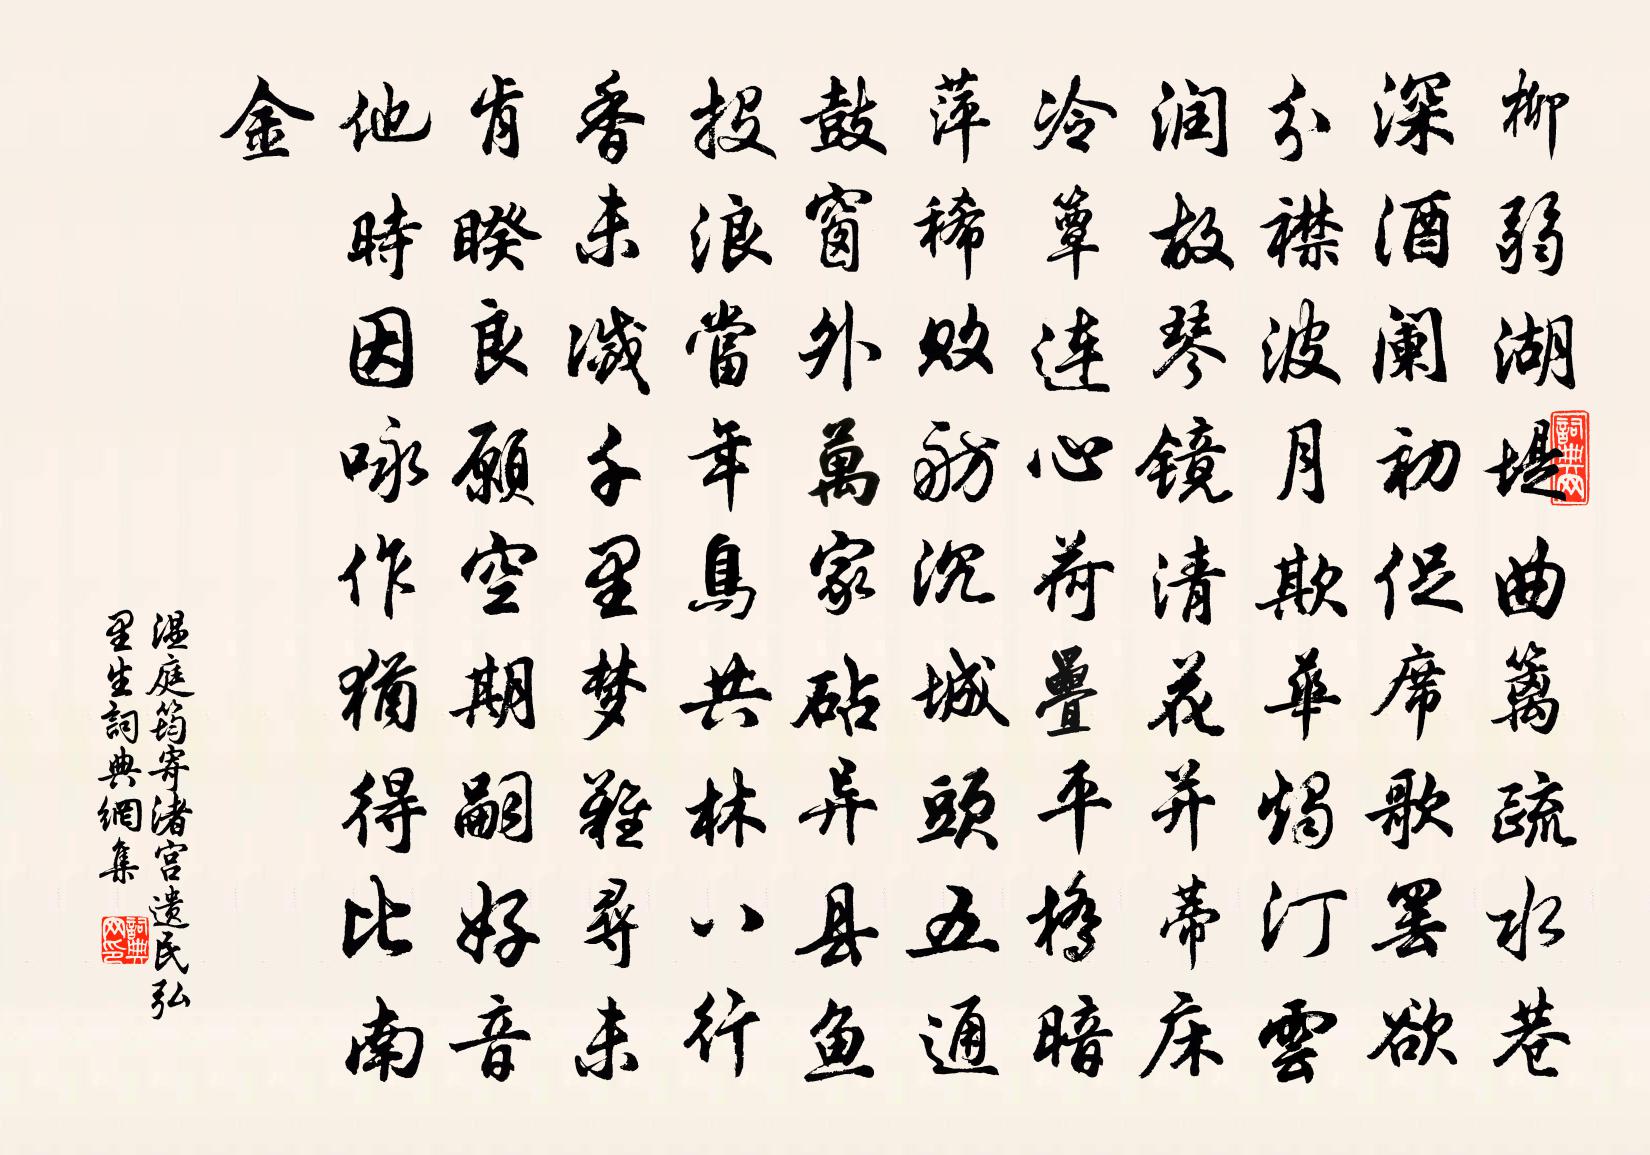 柳弱湖堤曲篱疏水巷
深酒阑初促席歌罢欲
分襟波月欺華烛汀雲
润故琴镜清花并蒂床
冷簟连心荷疊平橋暗
萍稀败舫沉城頭五通
鼓窗外萬家砧异县鱼
投浪當年鳥共林八行
香未滅千里梦難尋未
肯暌良願空期嗣好音
他時因咏作猶得比南
金
温庭筠寄渚宫遗民弘
里生詞典網集
詞典网
詞典网印